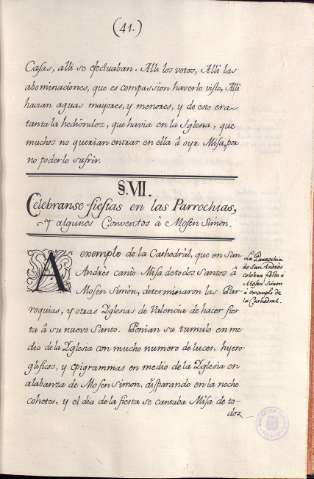 (41.)
Casas, allì se efectuaban. Allì los votos, Allì las
abominaciones, que es compassion haverlo visto, Allì
hacian aguas mayores, y menores, y de esto era
tanta la hediondez, que havia en la Iglesia, que
muchos no querian entrar en ella à oyr Missa, por
no poderlo sufrir.
§. VII.
Celebranse fiestas en las Parrochias,
y algunos Conventos à Mosen Simon.
A exemplo de la Cathedral, que en San
Andrès cantò Misa de todos santos à
Mosen Simon, determinaron las Par-
roquias, y otras Yglesias de Valencia de hacer fies-
ta à su nuevo Santo. Ponian su tumulo en me-
dio de la Yglesia con mucho numero de luces, hyero-
glificos, y epigrammas en medio de la Yglesia en
alabanza de Mosen Simon, disparando en la noche
cohetes, y el dia de la fiesta se cantaba Misa de to-
dos
La Parroquia
de San Andrès
celebra fiesta a
Mosen Simon
a exemplo de
la Cathedral.